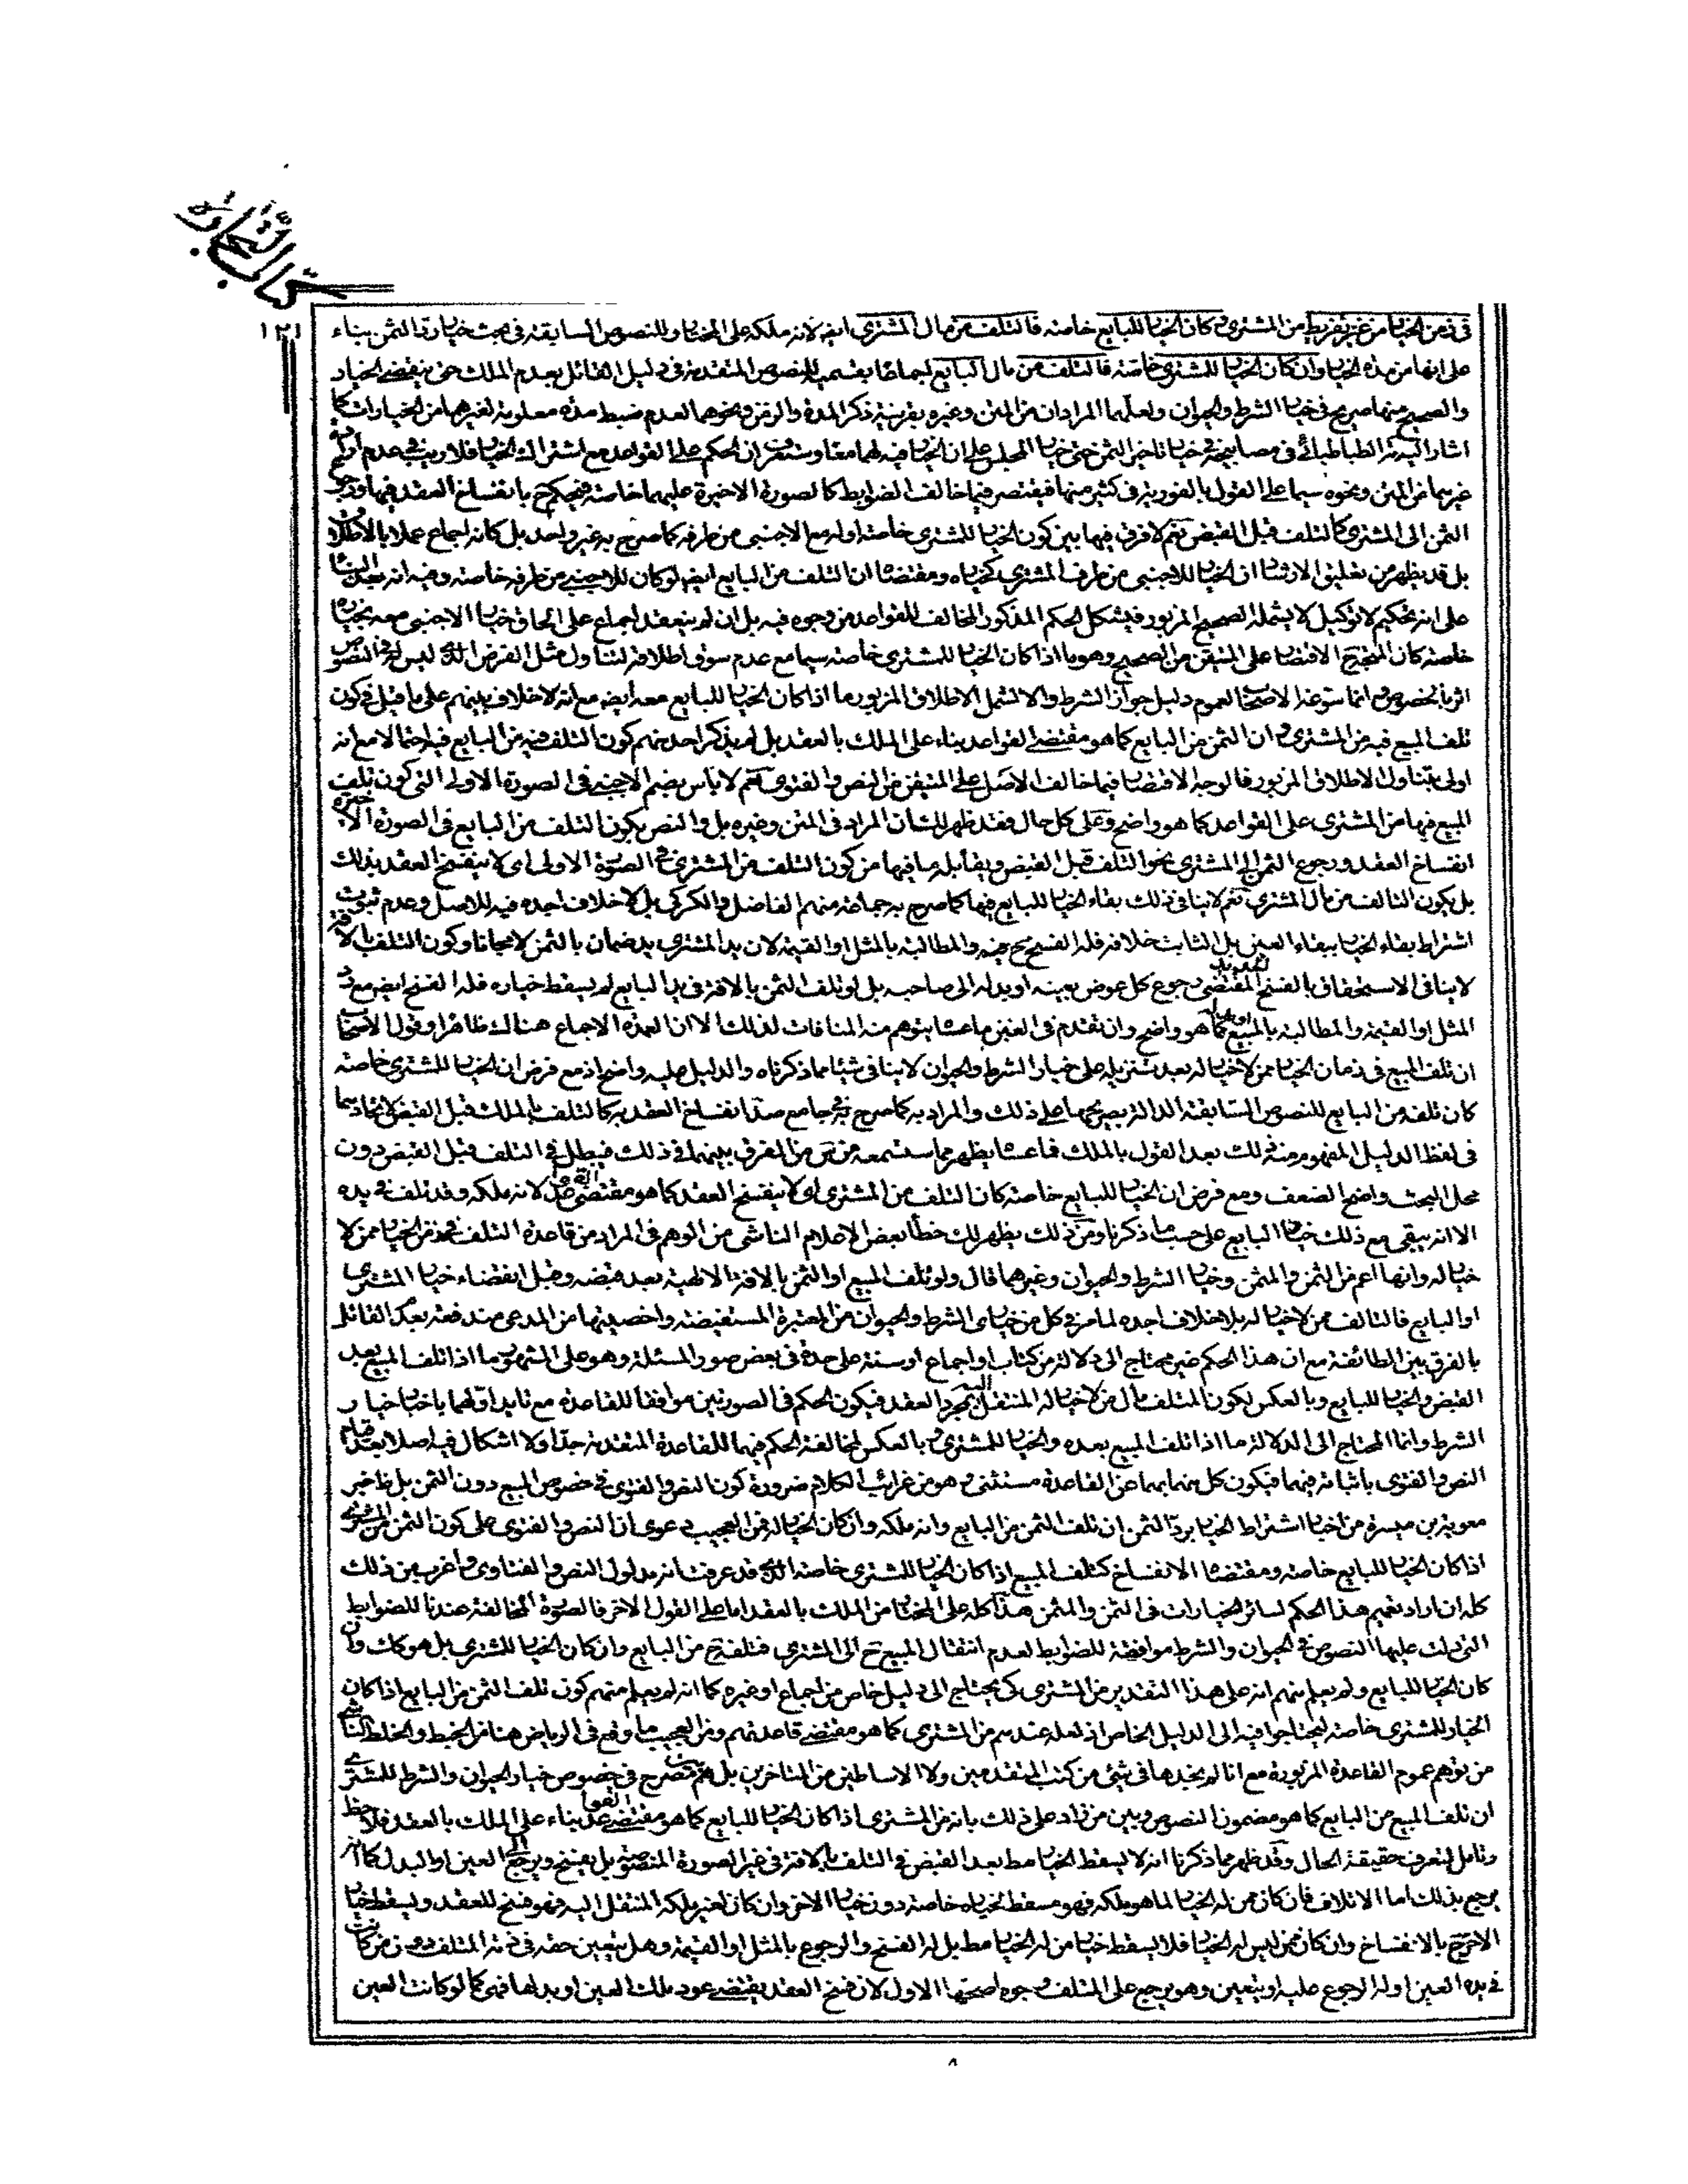 كتاب التجارة
١٢١
فى زمن الخيار من غير تفريط من المشترى وكان الخيار للبايع خاصة فالتلف من مال المشترى ايضا لانه ملكه على المختار وللنصوص السابقة فى بحث خيار رد الثمن بناء
على انها من هذه الخيار وان كان الخيار للمشترى خاصة فالتلف من مال البايع اجماعا بقسميه للنصوص المتقدمة فى دليل القائل بعدم الملك حتى ينقضى الخيار
والصحيح منها صريح فى خيار الشرط والحيوان ولعلهما المرادان من المتن وغيره بقرينة ذكر المدة والزمن ونحوهما لعدم ضبط مدة معلومة لغيرهما من الخيارات كما
اشار اليه الطباطبائى فى مصابيحه فى خيار تاخير الثمن حتى خيار المجلس على ان الخيار فيه لهما معا وستعرف ان الحكم على القواعد مع اشتراك الخيار فلا ريب فى عدم ارادة
غيرهما من المتن ونحوه سيما على القول بالفورية فى كثير منها فيقتصر فيما خالف الضوابط كالصورة الاخيرة عليهما خاصة فيحكم ح بانفساخ العقد فيها ورجوع
الثمن الى المشترى كالتلف قبل القبض نعم لا فرق فيها بين كون الخيار للمشترى خاصة او له مع الاجنبى من طرفه كما صرح به غير واحد بل كانه اجماع عملا بالاطلاق
بل قد يظهر من تعليق الارشاد ان الخيار للاجنبى من طرف المشترى كخياره ومقتضاه ان التلف من البايع ايضا لو كان للاجنبى من طرفه خاصة وفيه انه بعد البناء
على انه تحكيم لا توكيل لا يشمله الصحيح المزبور فيشكل الحكم المذكور المخالف للقواعد من وجوه فيه بل ان لم ينعقد اجماع على الحاق خيار الاجنبى معه بخياره
خاصة كان المتجه الاقتصار على المتيقن من الصحيح وهو ما اذا كان الخيار للمشترى خاصة سيما مع عدم سوق اطلاقه لتناول مثل الفرض الذى ليس له فى النصوص
اثر بالخصوص وانما سوغه الاصحاب لعموم دليل جواز الشرط والا لشمل الاطلاق المزبور ما اذا كان الخيار للبايع معه ايضا مع انه لا خلاف بينهم على ما قيل فى كون
تلف المبيع فيه من المشترى وان الثمن من البايع كما هو مقتضى القواعد بناء على الملك بالعقد بل لم يذكر احد منهم كون التلف فيه من البايع فيه احتمالا مع انه
اولى بتناول الاطلاق المزبور فالوجه الاقتصار فيما خالف الاصل على المتيقن من النص والفتوى نعم لا باس بضم الاجنبى فى الصورة الاولى التى كون تلف
المبيع فيها من المشترى على القواعد كما هو واضح وعلى كل حال فقد ظهر لك ان المراد فى المتن وغيره بل والنص بكون التلف من البايع فى الصورة الاخيرة
انفساخ العقد ورجوع الثمن الى المشترى نحو التلف قبل القبض ويقابله ما فيها من كون التلف من المشترى فى الصورة الاولى اى لا ينفسخ العقد بذلك
بل يكون التالف من مال المشترى نعم لا ينافى ذلك بقاء الخيار للبايع فيها كما صرح به جماعة منهم الفاضل والكركى بل لا خلاف اجده فيه للاصل وعدم ثبوت
اشتراط بقاء الخيار ببقاء العين بل الثابت خلافه فله الفسخ ح فيه والمطالبة بالمثل او القيمة لان يد المشترى يد ضمان بالثمن لا مجانا وكون التلف بالافة
لا ينافى الاستحقاق بالفسخ المقتضى لتقدير رجوع كل عوض بعينه او بدله الى صاحبه بل لو تلف الثمن بالافة فى يد البايع لم يسقط خياره فله الفسخ ايضا مع رد
المثل او القيمة والمطالبة بالمبيع او مثله كما هو واضح وان تقدم فى الغبن ما عساه يتوهم منه المنافات لذلك الا ان العمدة الاجماع هناك ظاهرا وقول الاصحاب
ان تلف المبيع فى زمان الخيار ممن لا خيار له بعد تنزيله على خيار الشرط والحيوان لا ينافى شيئا مما ذكرناه والدليل عليه واضح اذ مع فرض ان الخيار للمشترى خاصة
كان تلفه من البايع للنصوص السابقة الدالة بصريحها على ذلك والمراد به كما صرح به فى جامع صد انفساخ العقد به كالتلف بالملك قبل القبض لاتحادهما
فى لفظ الدليل المفهوم منه ذلك بعد القول بالملك فما عساه يظهر مما ستسمعه من س من الفرق بينهما فى ذلك فيبطل فى التلف قبل القبض دون
محل البحث واضح الضعف ومع فرض ان الخيار للبايع خاصة كان التلف من المشترى اى لا ينفسخ العقد كما هو مقتضى القواعد لانه ملكه وقد تلف فى يده
الا انه يبقى مع ذلك خيار البايع على حسب ما ذكرنا ومن ذلك يظهر لك خطأ بعض الاعلام الناشى من الوهم فى المراد من قاعدة التلف فى زمن الخيار ممن لا
خيار له وانها اعم من الثمن والمثمن وخيار الشرط والحيوان وغيرهما قال ولو تلف المبيع او الثمن بالافة الالهية بعد قبضه وقبل انقضاء خيار المشترى
او البايع فالتالف ممن لا خيار له بلا خلاف اجده لما مر فى كل من خيارى الشرط والحيوان من المعتبرة المستفيضة واخصيتها من المدعى مندفعة بعدم القائل
بالفرق بين الطائفة مع ان هذا الحكم غير محتاج الى دلالة من كتاب او اجماع او سنة على حدة فى بعض صور المسئلة وهو على المشهور ما اذا تلف المبيع بعد
القبض والخيار للبايع وبالعكس لكون المتلف مال من لا خيار له المنتقل اليه بمجرد العقد فيكون الحكم فى الصورتين موافقا للقاعدة مع تايد اولهما باخبار خيار
الشرط وانما المحتاج الى الدلالة ما اذا تلف المبيع بعده والخيار للمشترى وبالعكس لمخالفة الحكم فيهما للقاعدة المتقدمة جدا ولا اشكال فيه اصلا بعد قيام
النص والفتوى باثباته فيهما فيكون كل منهما بهما عن القاعدة مستثنى وهو من غرائب الكلام ضرورة كون النص والفتوى فى خصوص المبيع دون الثمن بل ظ خبر
معوية بن ميسرة من اخبار اشتراط الخيار برد الثمن ان تلف الثمن من البايع وانه ملكه وان كان الخيار له فمن العجيب دعوى ان النص والفتوى على كون الثمن من المشترى
اذا كان الخيار للبايع خاصة ومقتضاه الانفساخ كتلف المبيع اذا كان الخيار للمشترى خاصة الذى قد عرفت انه مدلول النص والفتاوى واغرب من ذلك
كله ان اراد تعميم هذا الحكم لسائر الخيارات فى الثمن والمثمن هذا كله على المختار من الملك بالعقد اما على القول الاخر فالصورة المخالفة عندنا للضوابط
التى دلت عليها النصوص فى الحيوان والشرط موافقة للضوابط لعدم انتقال المبيع ح الى المشترى فتلفه ح من البايع وان كان الخيار للمشترى بل هو كك وان
كان الخيار للبايع ولم يعلم منهم انه على هذا التقدير من المشترى كى يحتاج الى دليل خاص من اجماع او غيره كما انه لم يعلم منهم كون تلف الثمن من البايع اذا كان
الخيار للمشترى خاصة ليحتاجوا فيه الى الدليل الخاص اذ لعله عندهم من المشترى كما هو مقتضى قاعدتهم ومن العجيب ما وقع فى الرياض هنا من الخبط والخلط الناشى
من توهم عموم القاعدة المزبورة مع انا لم نجدها فى شئ من كتب المتقدمين ولا الاساطين من المتاخرين بل هم بين مصرح فى خصوص خيار الحيوان والشرط للمشترى
ان تلف المبيع من البايع كما هو مضمون النصوص وبين من زاد على ذلك بانه من المشترى اذا كان الخيار للبايع كما هو مقتضى القواعد بناء على الملك بالعقد فلاحظ
وتامل لتعرف حقيقة الحال وقد ظهر مما ذكرنا انه لا يسقط الخيار مط بعد القبض فى التلف بالافة فى غير الصورة المنصوصة بل يفسخ ويرجع الى العين او البدل كما انه
يرجع بذلك اما الاتلاف فان كان ممن له الخيار لما هو ملكه فهو مسقط لخياره خاصة دون خيار الاخر وان كان لغير ملكه المنتقل اليه فهو فسخ للعقد ويسقط خيار
الاخر ح بالانفساخ وان كان ممن ليس له الخيار فلا يسقط خيار من له الخيار مط بل له الفسخ والرجوع بالمثل او القيمة وهل يتعين حقه فى ذمة المتلف دون من كانت
فى يده العين او له الرجوع عليه او يتعين وهو يرجع على المتلف وجوه اصحها الاول لان فسخ العقد يقتضى عود ملك العين او بدلها فهى كما لو كانت العين